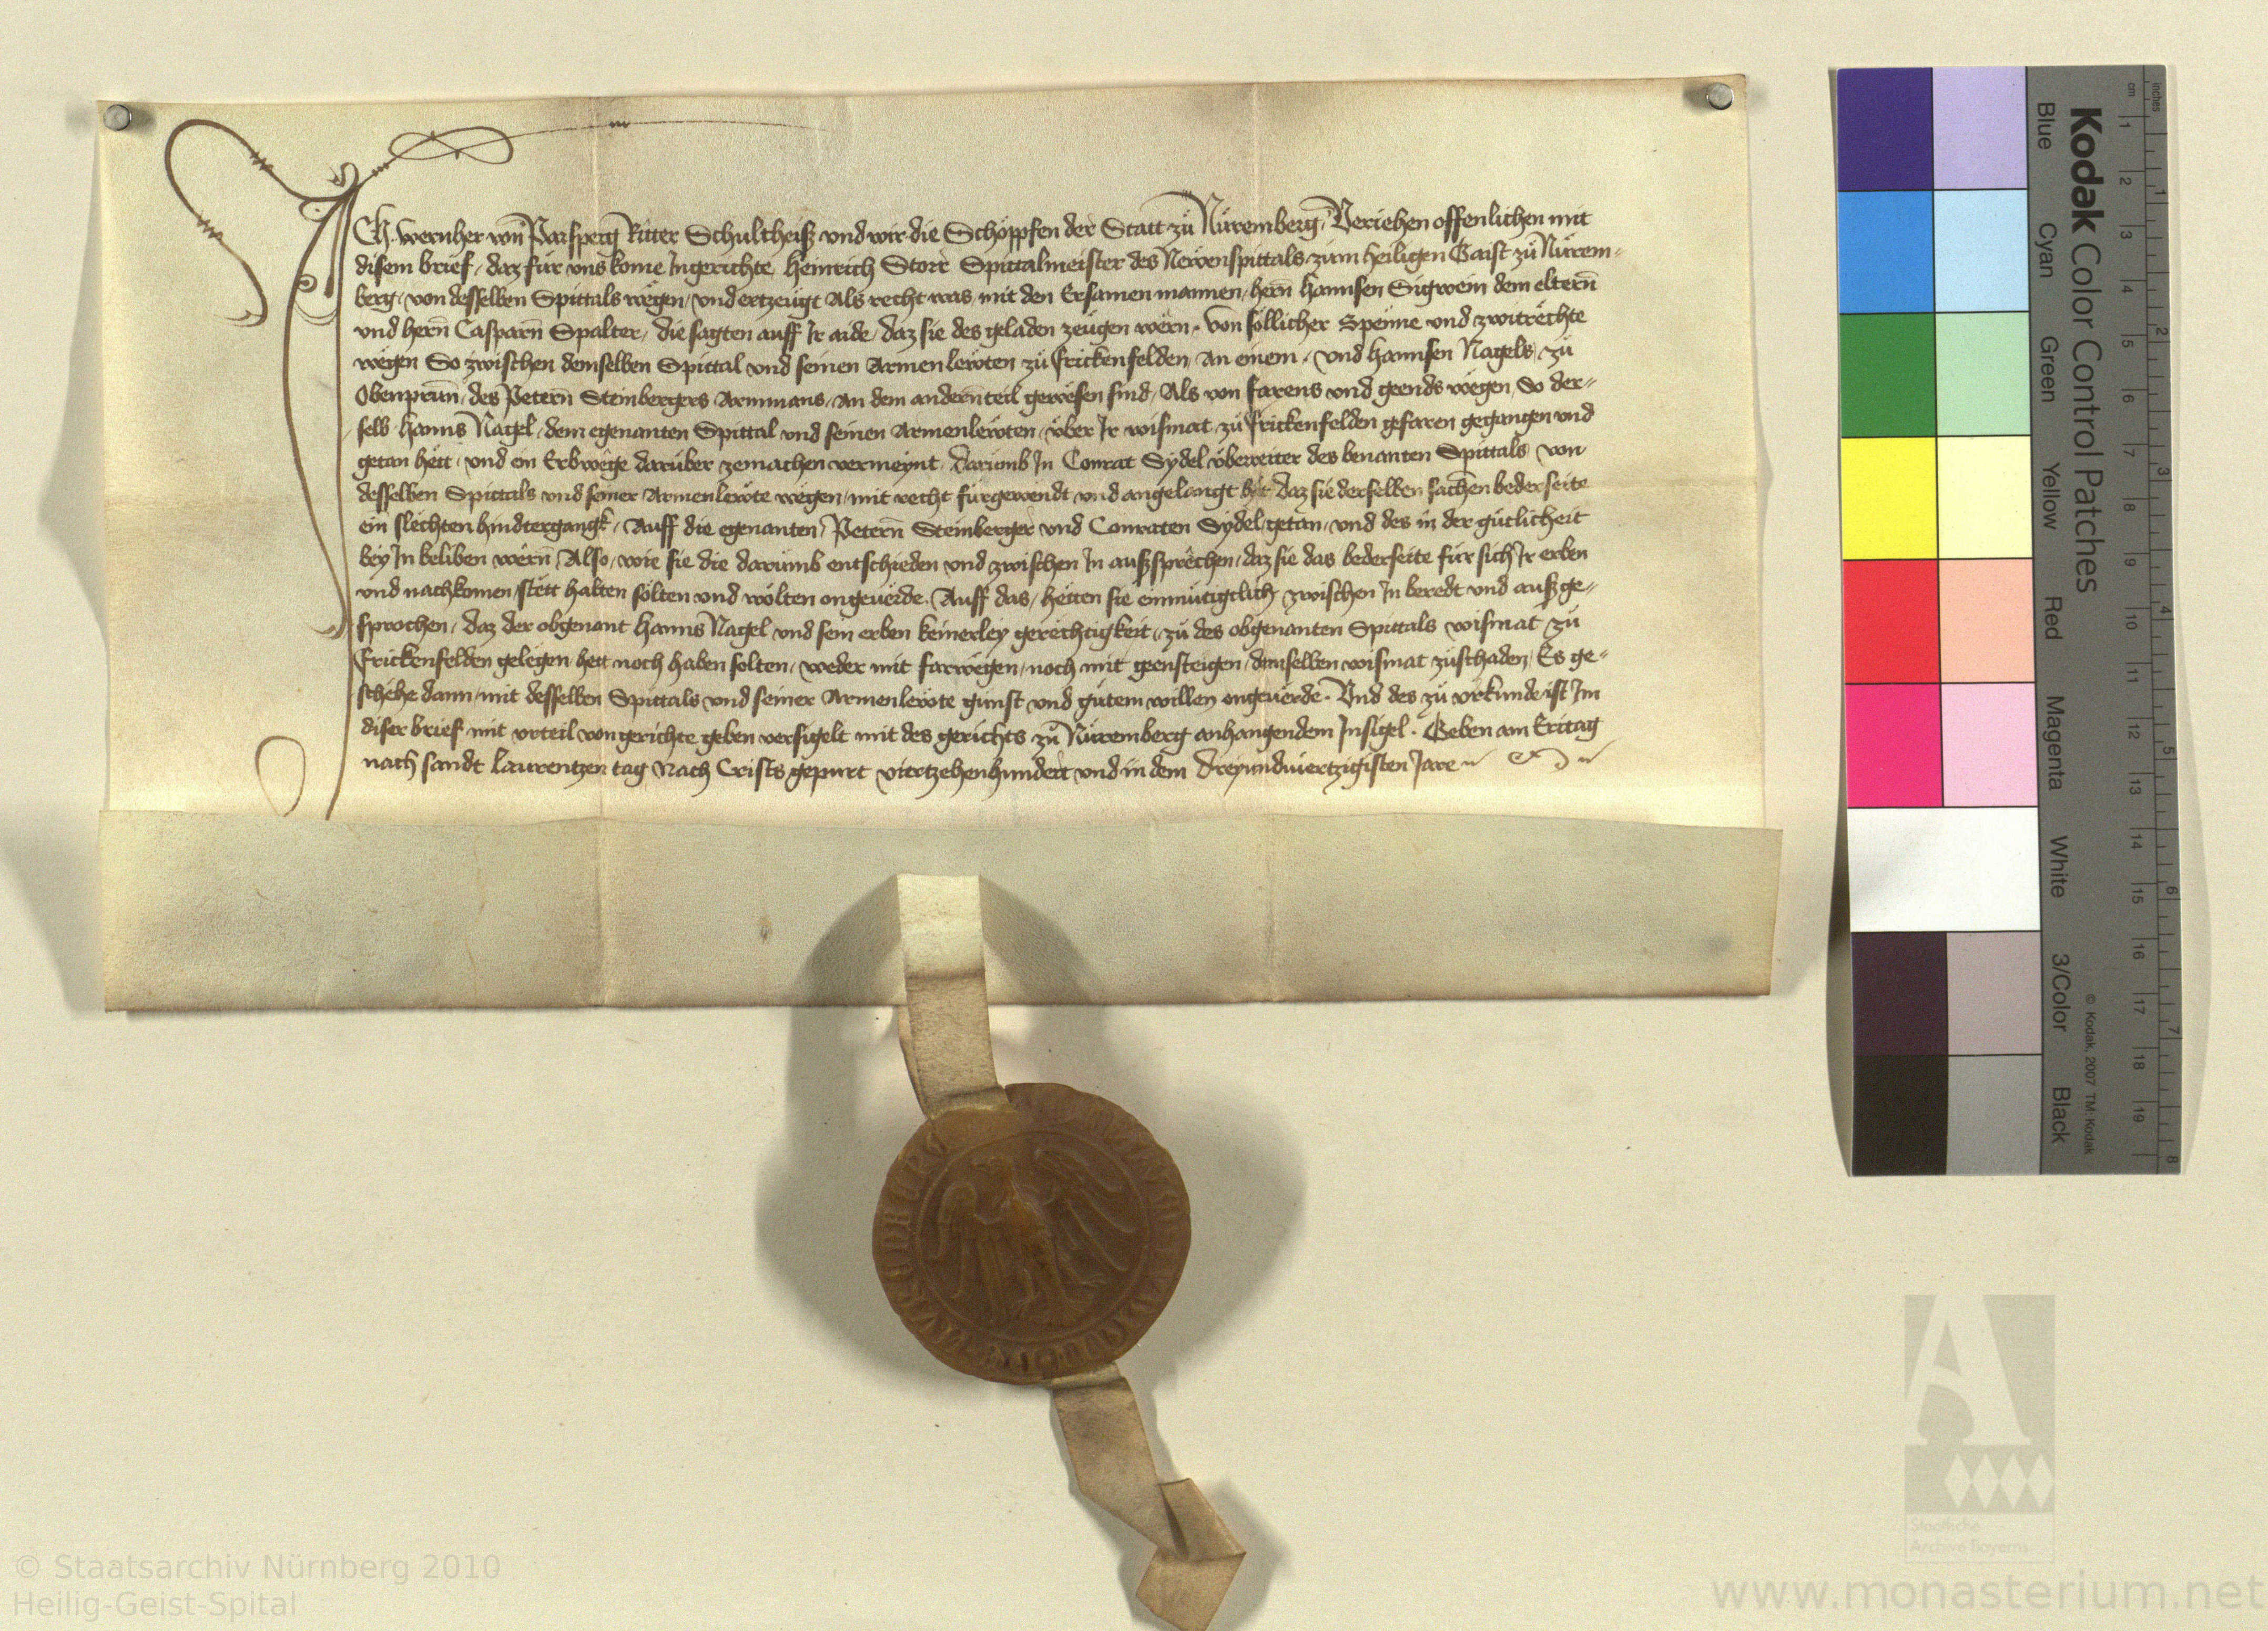 ICh Wernher von Parsperg Ritter Schultheiß und wir die Schöppfen der Statt zü Nüremberg, Veriehen offenlichen mit
disem brief, daz für uns kome Ingerichte Heinrich Storr Spittalmeister des Newenspittals zum heiligen Gaist zü Nürem=
berg, von desselben Spittals wegen, und ertzeugt Als recht was, mit den Ersamen mannen, hern Hannsen Sigwein dem eltern
und hern Casparn Spalter, die sagten auff Ir aide, daz sie des geladen zeugen wern, Von söllicher Spenne und zwitrechte
wegen So zwischen demselben Spittal und seinen Armenlewten zü Frickenfelden, An einem, und Hannsen Nagels, zü
Obenprunn, des Petern Steinbergers Armmans, An dem andern teil gewesen sind, Als von farens und geends wegen, So der=
selb Hanns Nagel, dem egenanten Spittal und seinen Armenlewten, über Ir wismat zü Frickenfelden gefaren gegangen und
getan hett, und ein Erbwege darüber zemachen vermeynt, Darumb In Conrat Sydel überreiter des benanten Spittals, von
desselben Spittals und seiner Armenlewte wegen, mit recht fürgewendt und angelangt het, daz sie derselben sachen bederseite
ein slechten hindtergangk, Auff die egenanten, Petern Steinberger und Conraten Sydel, getan, und des in der gütlicheit
bey In beliben wern, Also, wie sie die darumb entschieden und zwischen In außsprechen, daz sie das bederseite für sich Ir erben
und nachkomen, stett halten sölten und wölten ongeuerde. Auff das, hetten sie einmütigclich zwischen In beredt und außge=
sprochen, daz der obgenant Hanns Nagel und sein erben keinerley gerechtigkeit, zü des obgenanten Spittals wismat zü
Frickenfelden gelegen hett noch haben solten, weder mit farwegen, noch mit geensteigen, demselben wismat züschaden, Es ge=
schehe dann, mit desselben Spittals und seiner Armenlewte gunst und gütem willen ongeuerde. Und des zü urkunde ist Im
diser brief mit urteil von gerichte geben versigelt mit des gerichts zü Nüremberg anhangendem Insigel. Geben am Eritag
nach sandt Laurentzen tag Nach Crists gepurt viertzehenhundert und in dem Dreyundviertzigisten Jare
Kodak Color Control Patches
Blue Cyan Green Yellow Red Magenta White 3/Color Black
© Kodak, 2007 TM: Kodak
inches 1 2 3 4 5 6 7 8
cm 1 2 3 4 5 6 7 8 9 10 11 12 13 14 15 16 17 18 19
Staatliche
Archive Bayerns
© Staatsarchiv Nürnberg 2010
Heilig-Geist-Spital
www.monasterium.net